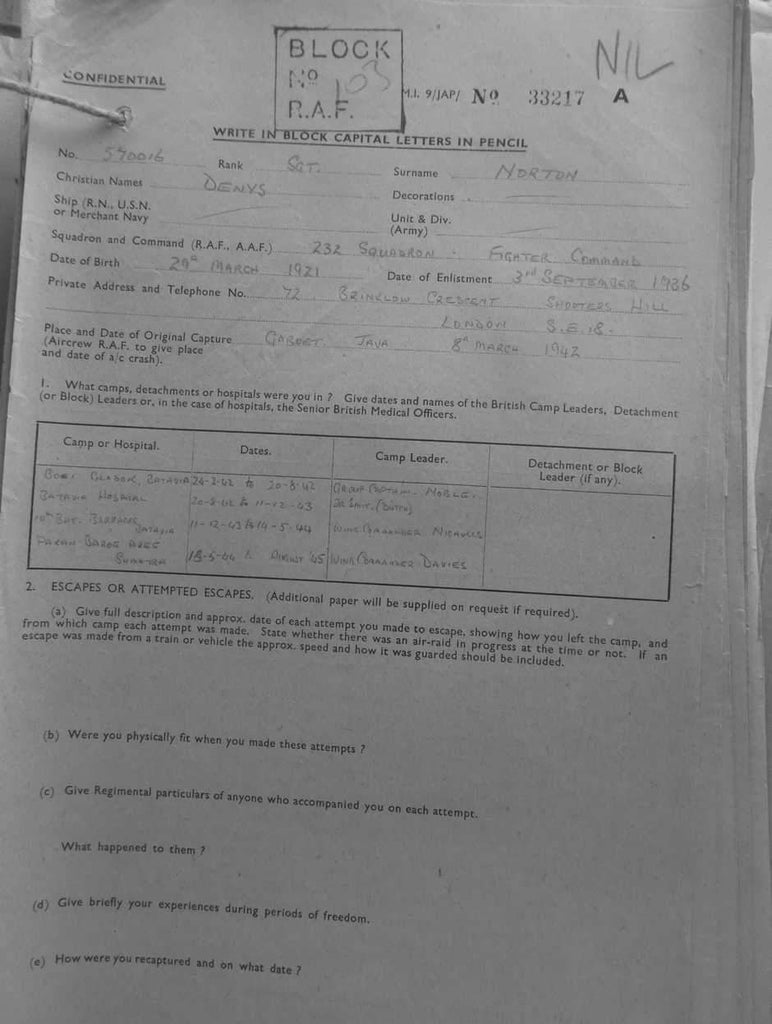 CONFIDENTIAL
BLOCK
Nº 103
R.A.F.
NIL
M.I. 9/JAP/ Nº 33217 A
WRITE IN BLOCK CAPITAL LETTERS IN PENCIL
No. 570016 Rank SGT. Surname NORTON
Christian Names DENYS Decorations
Ship (R.N., U.S.N. or Merchant Navy Unit & Div. (Army)
Squadron and Command (R.A.F., A.A.F.) 232 SQUADRON - FIGHTER COMMAND
Date of Birth 29th MARCH 1921 Date of Enlistment 3rd SEPTEMBER 1936
Private Address and Telephone No. 72 BRINKLOW CRESCENT SHOOTERS HILL
LONDON S.E.18.
Place and Date of Original Capture
(Aircrew R.A.F. to give place
and date of a/c crash). JAVA 8th MARCH 1942
1. What camps, detachments or hospitals were you in ? Give dates and names of the British Camp Leaders, Detachment
(or Block) Leaders or, in the case of hospitals, the Senior British Medical Officers.
Camp or Hospital. Dates. Camp Leader. Detachment or Block
Leader (if any).
BOEI GLADOK, BATAVIA 24-3-42 to 20-8-42 GROUP CAPTAIN NOBLE.
BATAVIA HOSPITAL 20-8-42 to 11-12-43 DR SMIT. (DUTCH)
10th BAT. BARRACKS, BATAVIA 11-12-43 to 14-5-44 WING COMMANDER NICHOLLS
PAKAN BAROE AREA
SUMATRA 18-5-44 to AUGUST '45 WING COMMANDER DAVIES
2. ESCAPES OR ATTEMPTED ESCAPES. (Additional paper will be supplied on request if required).
(a) Give full description and approx. date of each attempt you made to escape, showing how you left the camp, and
from which camp each attempt was made. State whether there was an air-raid in progress at the time or not. If an
escape was made from a train or vehicle the approx. speed and how it was guarded should be included.
(b) Were you physically fit when you made these attempts ?
(c) Give Regimental particulars of anyone who accompanied you on each attempt.
What happened to them ?
(d) Give briefly your experiences during periods of freedom.
(e) How were you recaptured and on what date ?